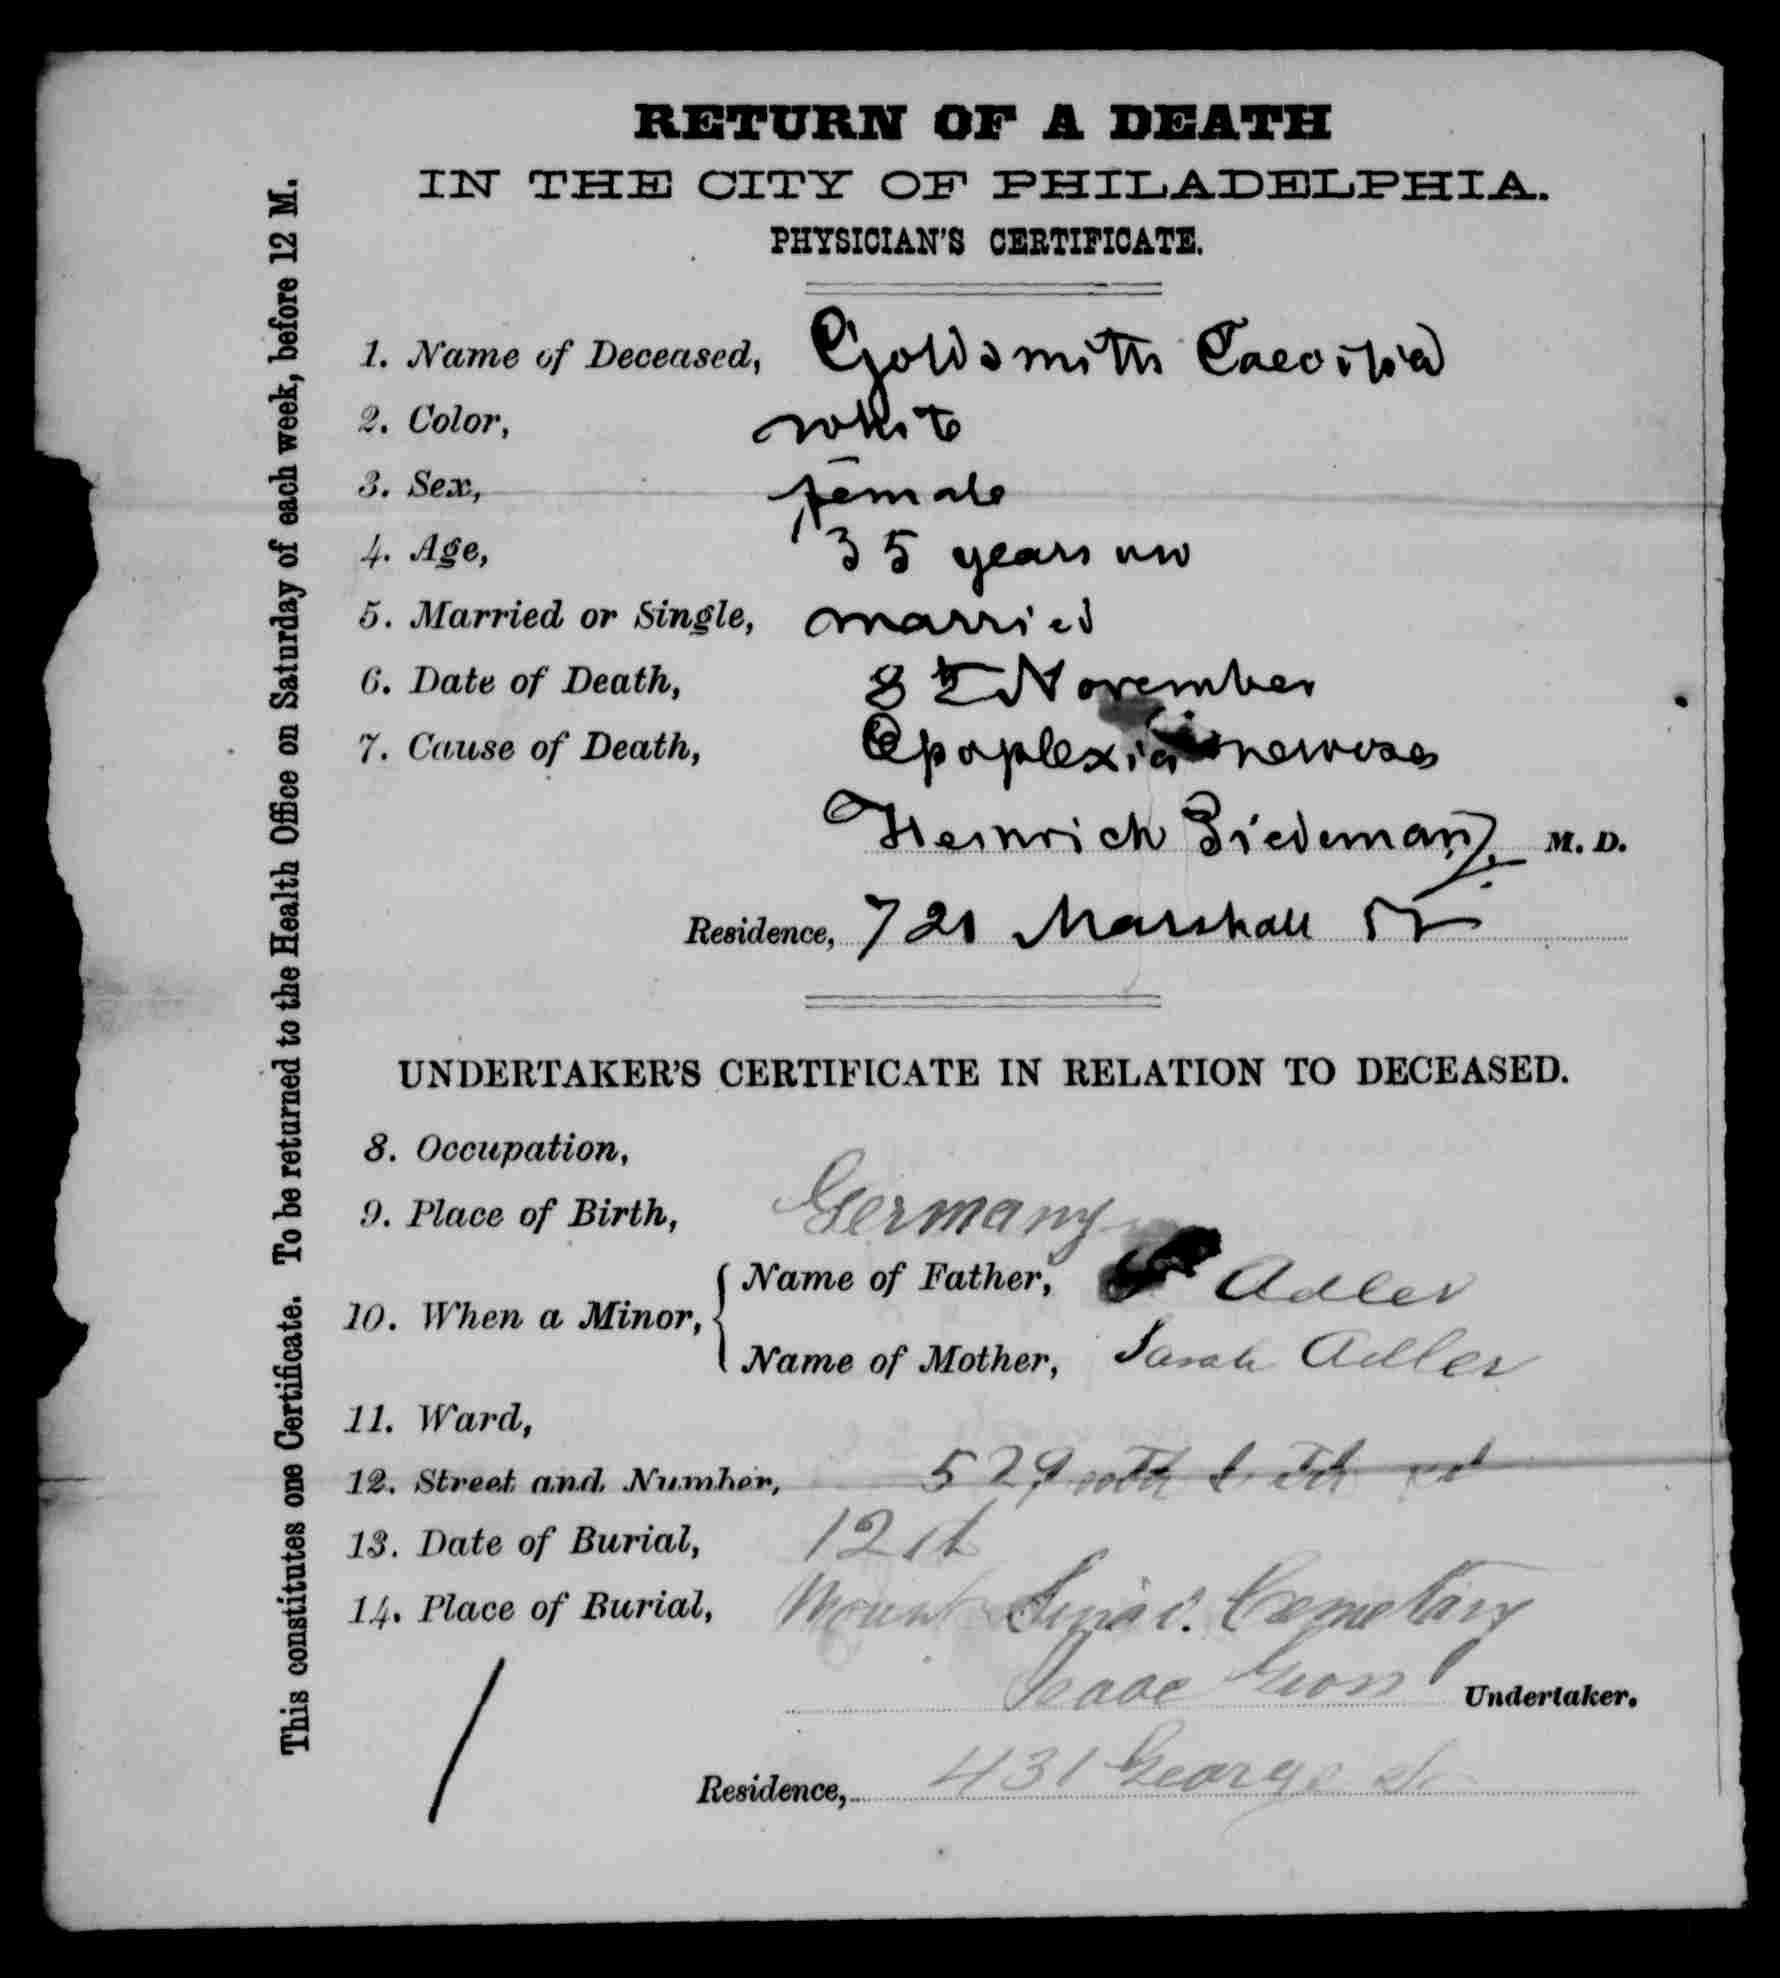 This constitutes one Certificate. To be returned to the Health Office on Saturday of each week, before 12 M.
RETURN OF A DEATH
IN THE CITY OF PHILADELPHIA.
PHYSICIAN'S CERTIFICATE.
1. Name of Deceased, Goldsmith Caecilia
2. Color, white
3. Sex, female
4. Age, 35 years
5. Married or Single, married
6. Date of Death, 8th November
7. Cause of Death, Apoplexia nervosa
Heinrich Tiedemann M. D.
Residence, 721 Marshall St
UNDERTAKER'S CERTIFICATE IN RELATION TO DECEASED.
8. Occupation,
9. Place of Birth, Germany
10. When a Minor,
Name of Father, Adler
Name of Mother, Sarah Adler
11. Ward,
12. Street and Number, 529 st
13. Date of Burial, 12th
14. Place of Burial, Mount Sinai. Cemetary
Isaac Undertaker.
Residence, 431 George St